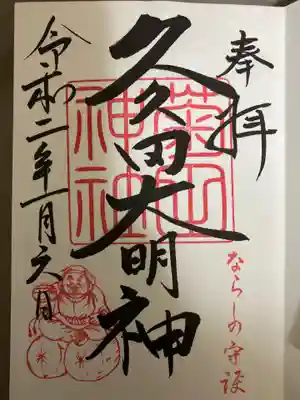 奉拝
ならしの守護
菊田
神社
久久田大明神
令和二年一月六日